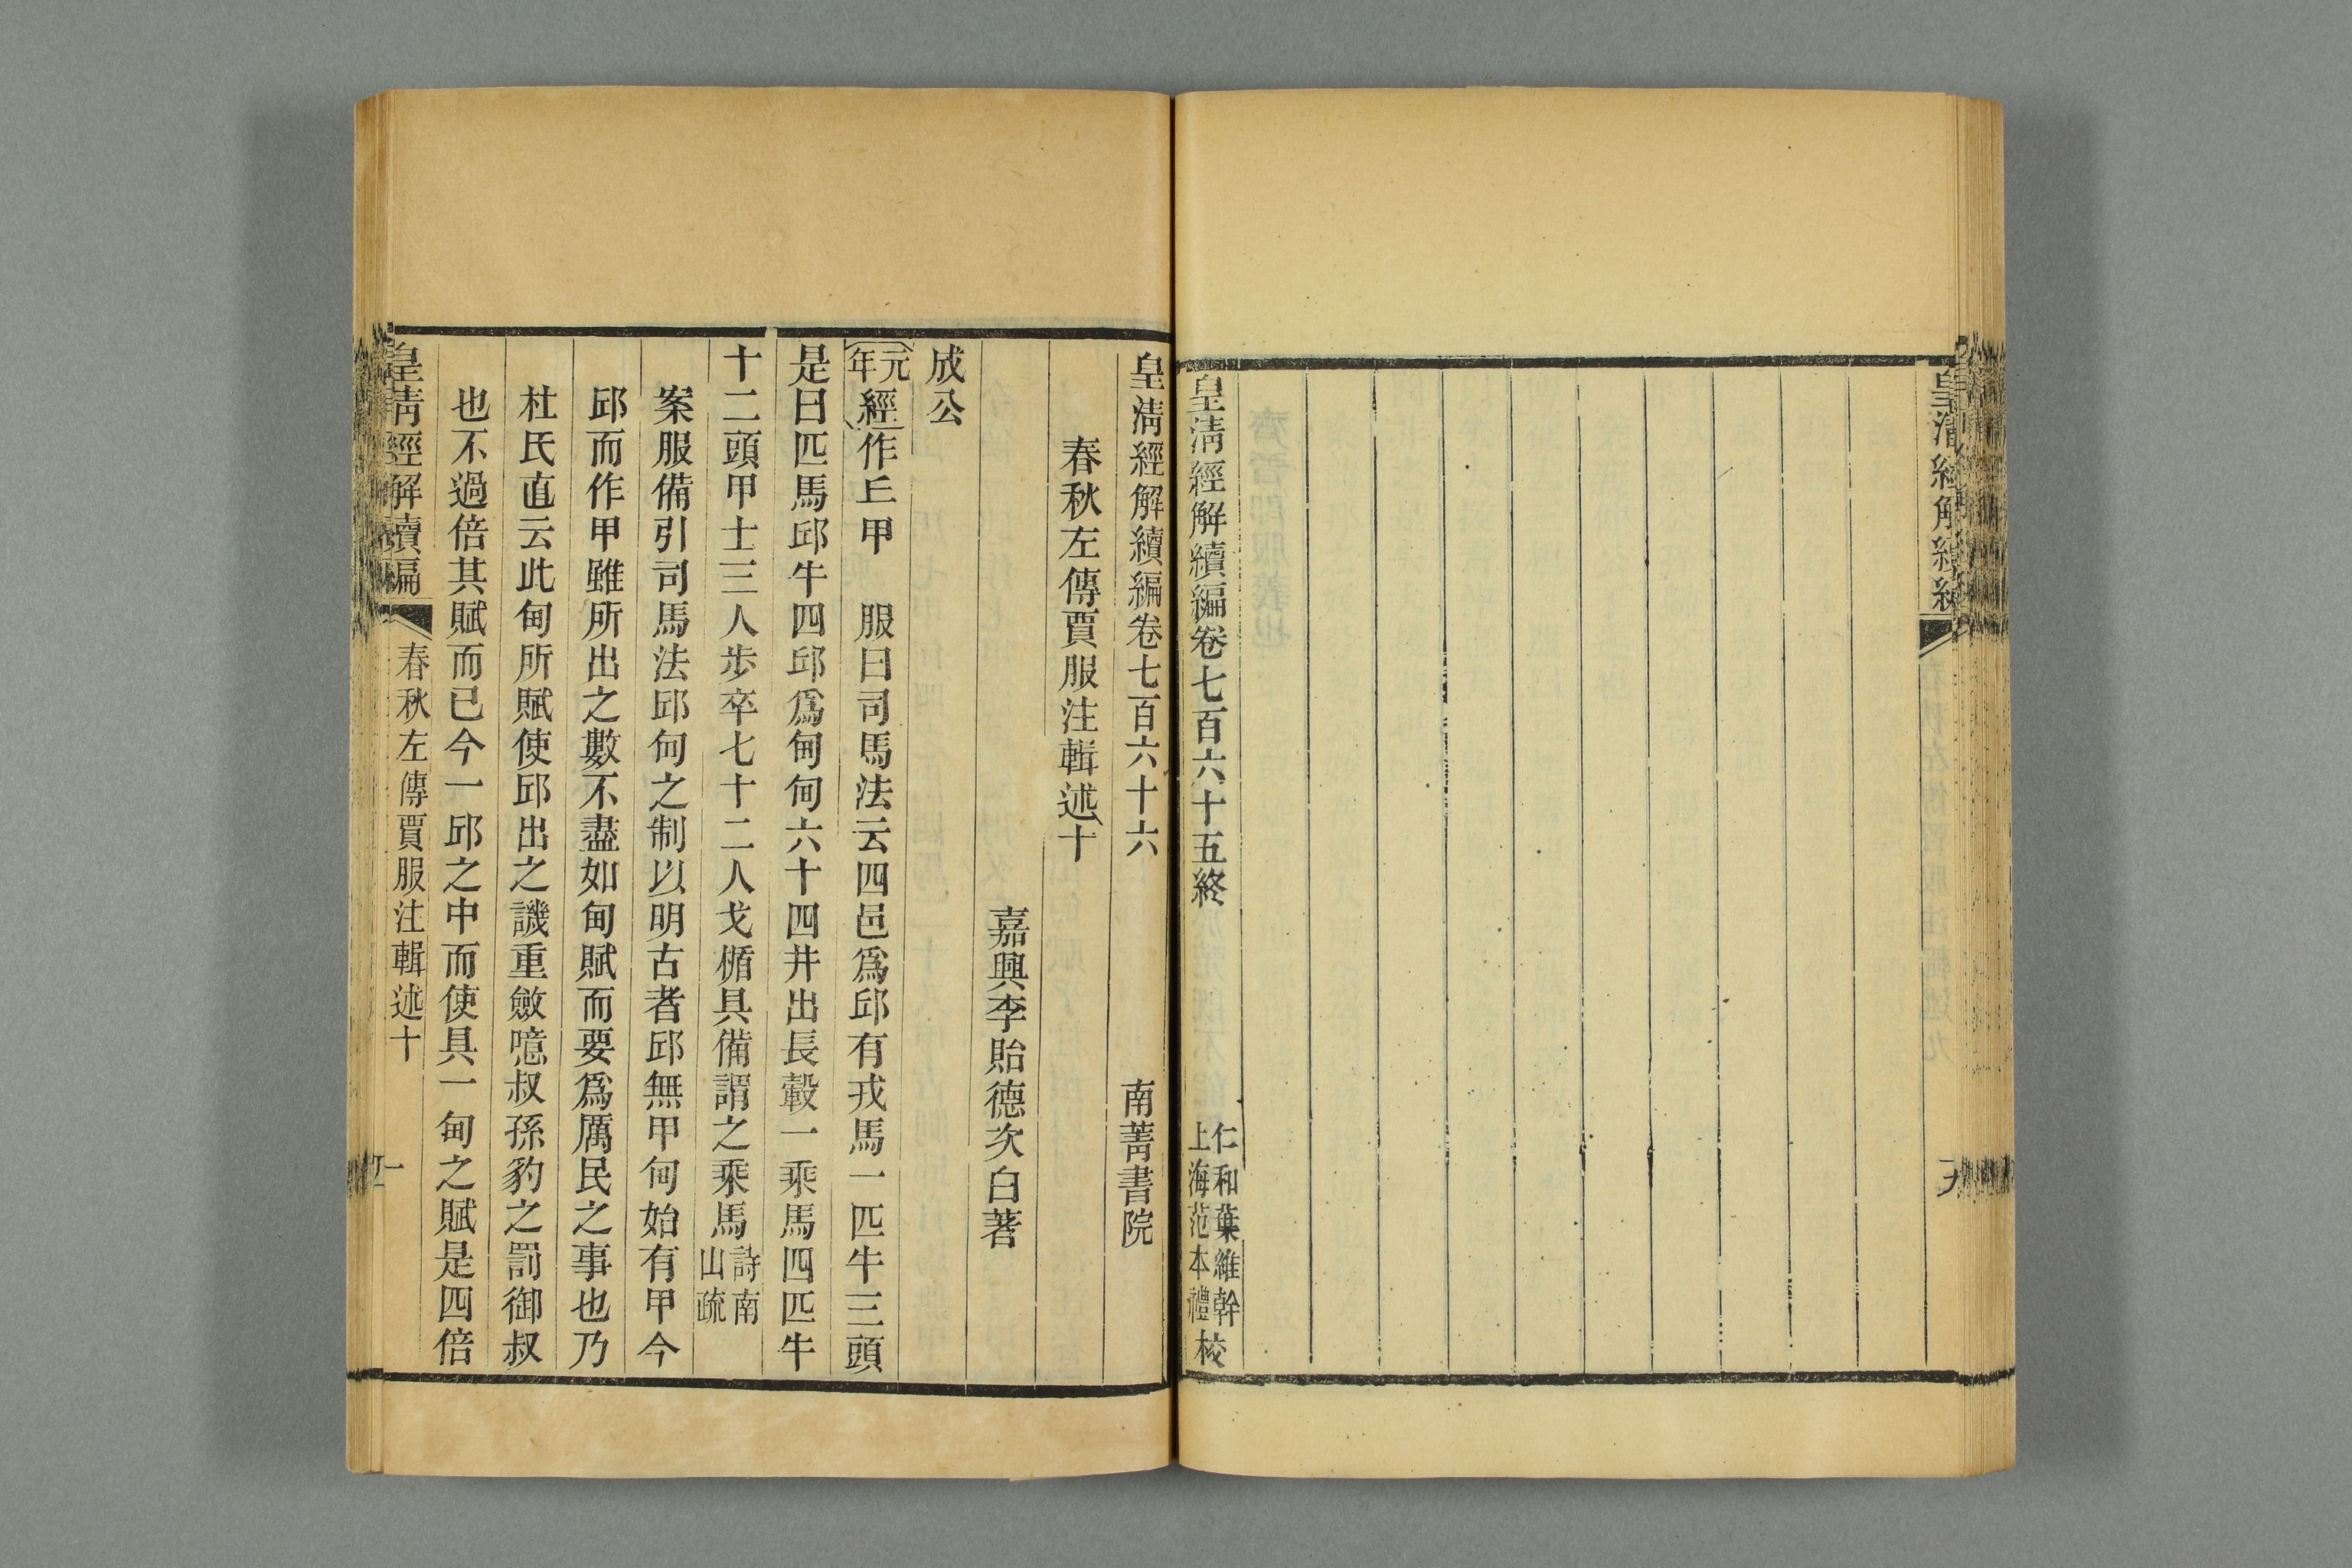 皇清經解續編
皇清經解續編卷七百六十五終
仁和葉維幹
上海范本禮
校
皇清經解續編卷七百六十六
南菁書院
春秋左傳賈服注輯述十
嘉興李貽德次白著
成公
元年經作𠀉甲　服曰司馬法云四邑爲邱有戎馬一匹牛三頭
是曰匹馬邱牛四邱爲甸甸六十四井出長轂一乘馬四匹牛
十二頭甲士三人步卒七十二人戈楯具備謂之乘馬詩南山疏
案服備引司馬法邱甸之制以明古者邱無甲甸始有甲今
邱而作甲雖所出之數不盡如甸賦而要爲厲民之事也乃
杜氏直云此甸所賦使邱出之譏重斂噫叔孫豹之罰御叔
也不過倍其賦而已今一邱之中而使具一甸之賦是四倍
皇清經解續編
春秋左傳賈服注輯述十
一